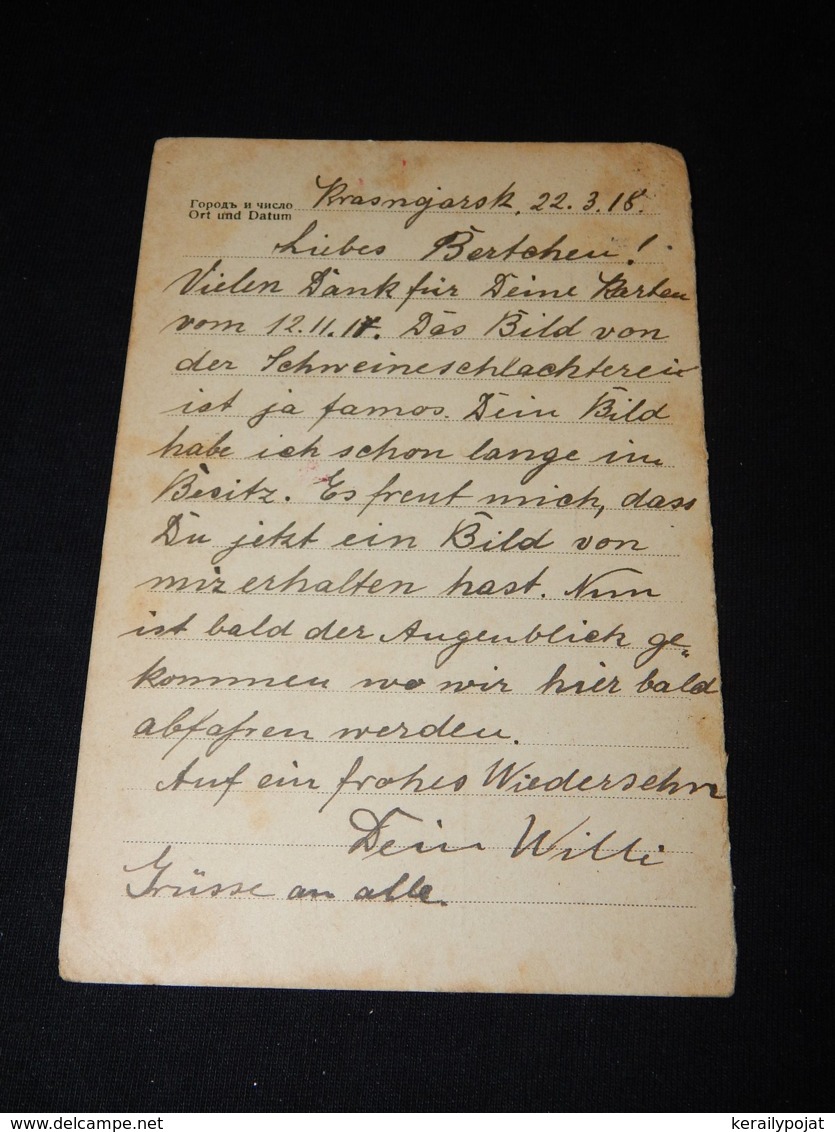 Городъ и число
Ort und Datum
Krasnojarsk, 22.3.18.
Liebes Bertchen!
Vielen Dank für Deine Karten
vom 12.11.17. Das Bild von
der Schweineschlachterei
ist ja famos. Dein Bild
habe ich schon lange im
Besitz. Es freut mich, dass
Du jetzt ein Bild von
mir erhalten hast. Nun
ist bald der Augenblick ge=
kommen wo wir hier bald
abfahren werden.
Auf ein frohes Wiedersehn
Dein Willi
Grüsse an alle.
www.delcampe.net
kerailypojat